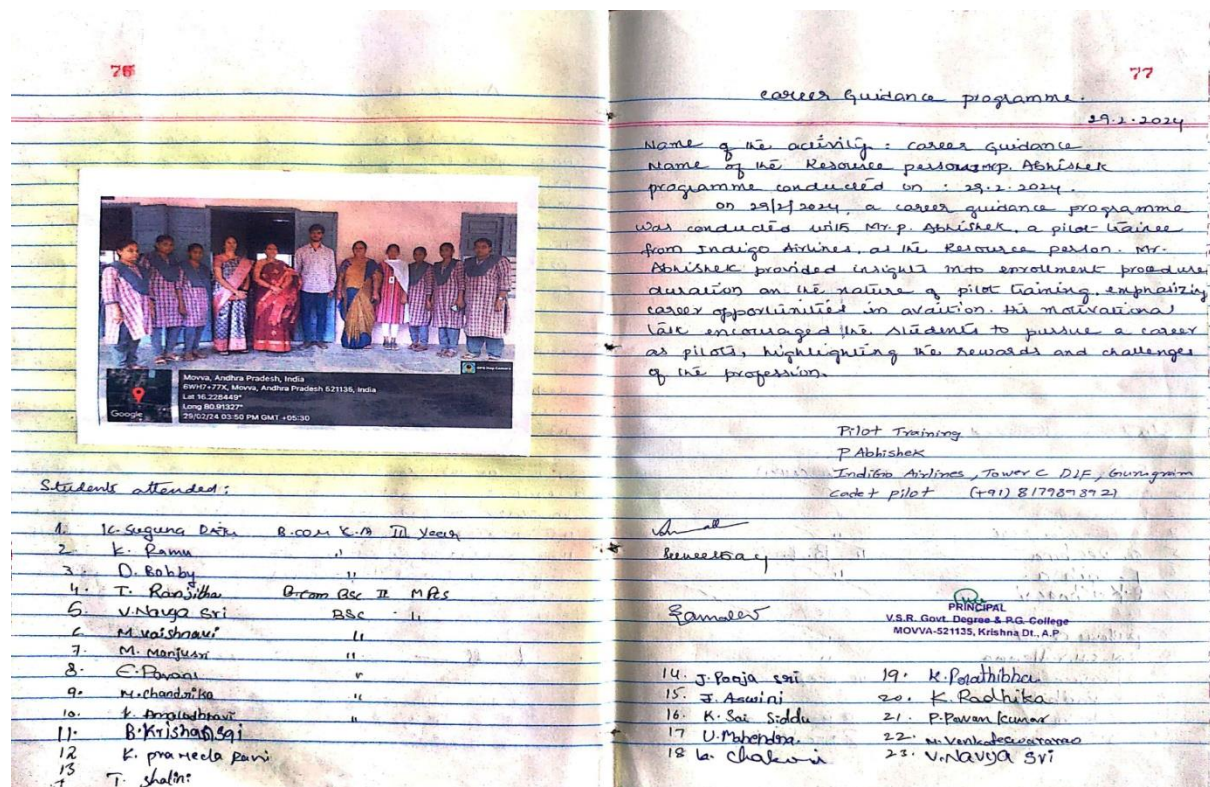 76
Movva, Andhra Pradesh, India
6WH7+77X, Movva, Andhra Pradesh 521135, India
Lat 16.228449°
Long 80.91327°
29/02/24 03:50 PM GMT +05:30
Google
Students attended :
1. K. Suguna B.com C.A II Year
2 K. Ramu "
3. D. Bobby "
4. T. Ranjitha B.com BSc II MPCs
5. V. Navya Sri BSC "
6 M. Vaishnavi "
7. M. Manjusri "
8. E. Pavani "
9. M. Chandrika "
10. "
11. B. Krishna Sai
12 K. prameela Rani
13 T. Shalini
77
career Guidance programme.
29.2.2024
Name of the activity : career Guidance
Name of the Resource person Mr p. Abhishek
programme conducted on : 29.2.2024.
on 29/2/2024, a career guidance programme
was conducted with Mr. p. Abhishek, a pilot trainee
from Indigo Airlines, as the Resource person. Mr.
Abhishek provided insights into enrollment procedure
duration an the nature of pilot training, emphasizing
career opportunities in avaition. His motivational
talk encouraged the students to pursue a career
as pilots, highlighting the rewards and challenges
of the profession.
Pilot Training
P Abhishek
IndiGo Airlines, Tower C DLF, Gurugram
Cadet pilot (+91)
PRINCIPAL
V.S.R. Govt. Degree & P.G. College
MOVVA-521135, Krishna Dt., A.P
14. J. Pooja Sri 19. K. Prathibha
15. J. Aswini 20. K. Radhika
16. K. Sai Siddu 21. P. Pavan Kumar
17 U. Mahendra. 22. N. Venkateswararao
18 23. V. Navya Sri